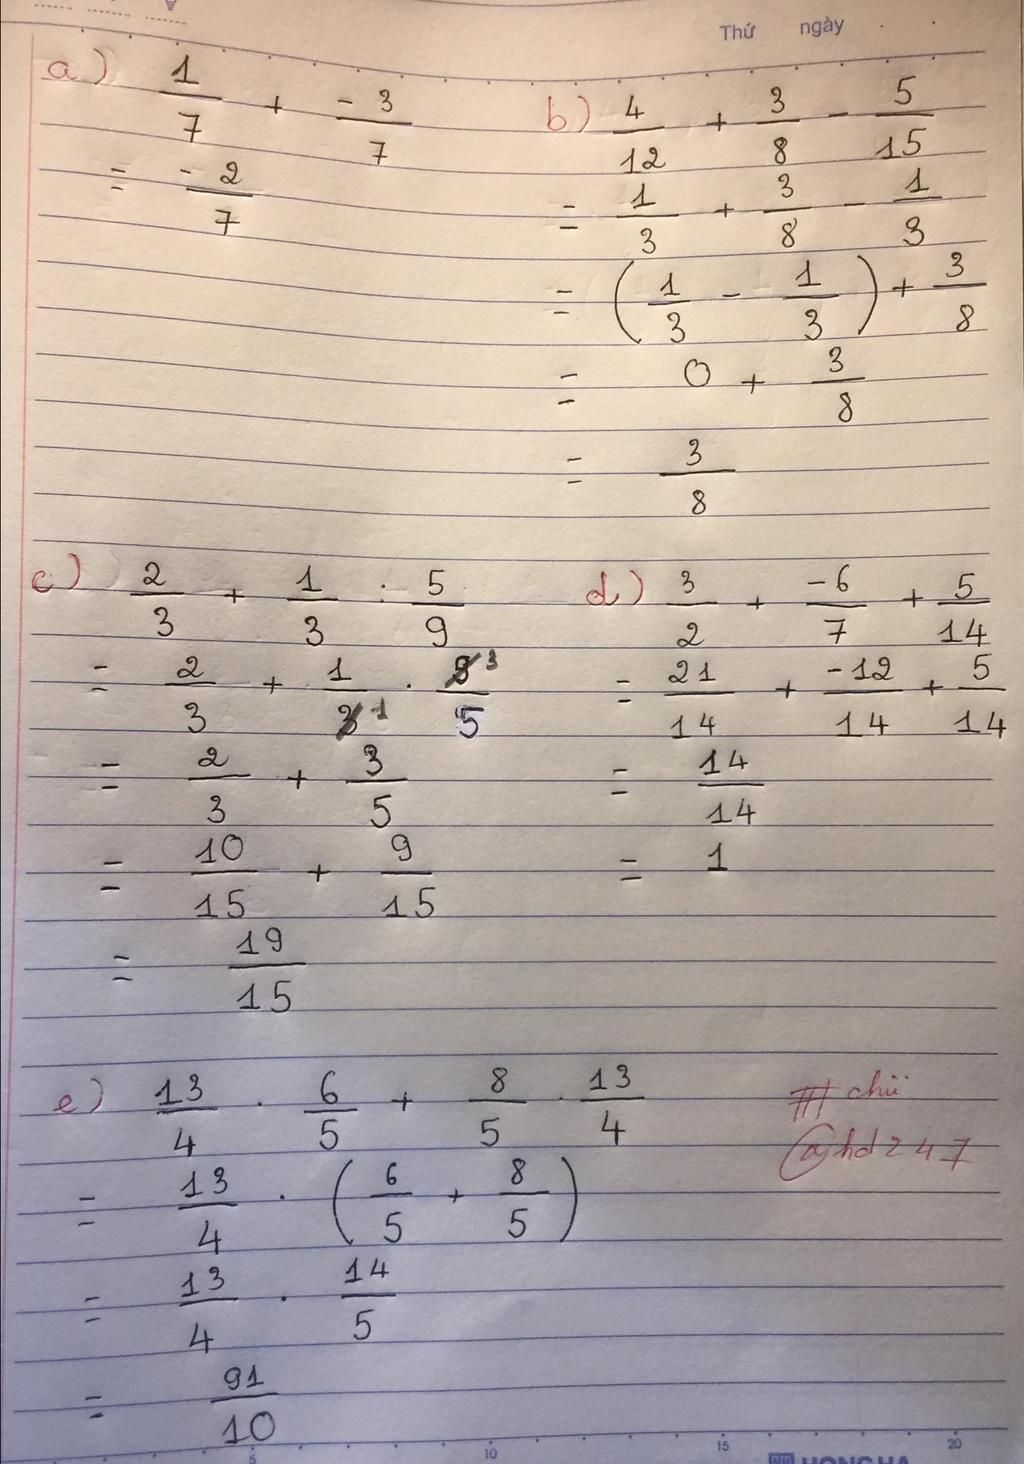 Thứ ngày
a) 1/7 + -3/7
= -2/7
b) 4/12 + 3/8 - 5/15
= 1/3 + 3/8 - 1/3
= (1/3 - 1/3) + 3/8
= 0 + 3/8
= 3/8
c) 2/3 + 1/3 : 5/9
= 2/3 + 1/3 1 . 9/5 3
= 2/3 + 3/5
= 10/15 + 9/15
= 19/15
d) 3/2 + -6/7 + 5/14
= 21/14 + -12/14 + 5/14
= 14/14
= 1
e) 13/4 . 6/5 + 8/5 . 13/4
= 13/4 . (6/5 + 8/5)
= 13/4 . 14/5
= 91/10
# chii
@hd247
5 10 15 20
HONG HA